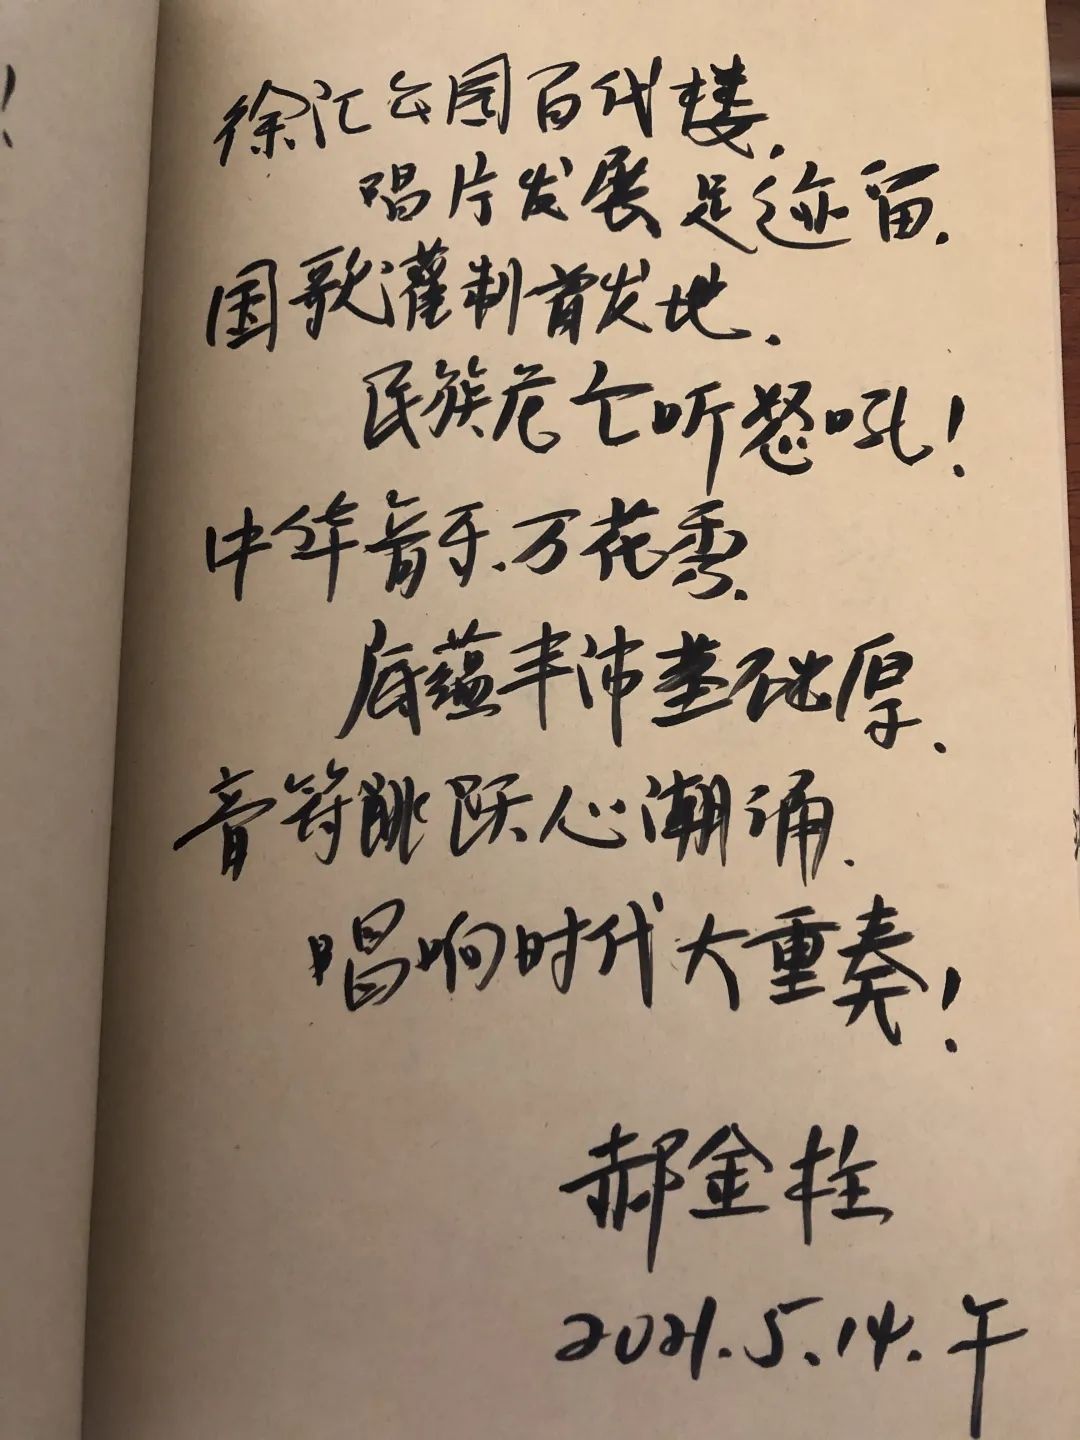 ！
徐汇公园百代楼，
唱片发展足迹留．
国歌灌制首发地．
民族危亡听怒吼！
中华音乐万花秀．
底蕴丰沛基础厚．
音符跳跃心潮涌．
唱响时代大重奏！
郝金柱
2021.5.14.午